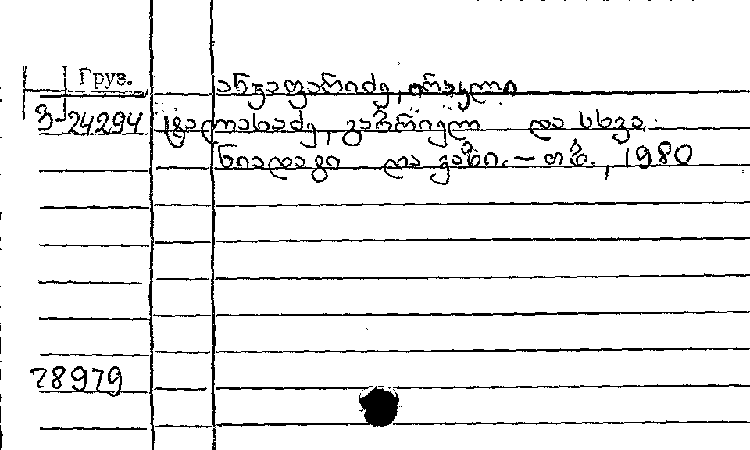 Груз. ანჯაფარიძე, ირაკლი
3-24294 ტალახაძე, გაბრიელ და სხვა.
ნიადაგი და ვაზი. — თბ., 1980
78979